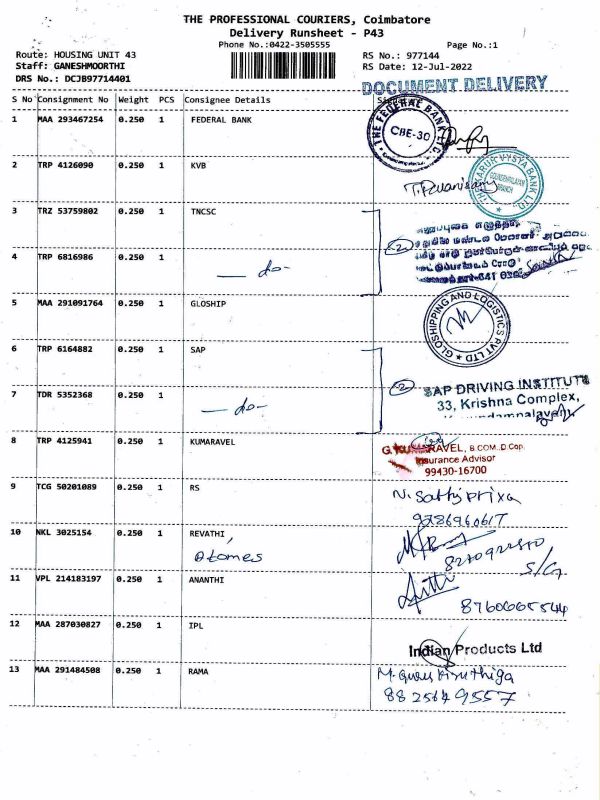 THE PROFESSIONAL COURIERS, Coimbatore
Delivery Runsheet - P43
Phone No.:0422-3505555
Page No.:1
Route: HOUSING UNIT 43
RS No.: 977144
Staff: GANESHMOORTHI
RS Date: 12-Jul-2022
DRS No.: DCJB97714401
DOCUMENT DELIVERY
S No Consignment No Weight PCS Consignee Details
1 MAA 293467254 0.250 1 FEDERAL BANK
THE FEDERAL BANK
CBE-30
2 TRP 4126090 0.250 1 KVB
THE KARUR VYSYA BANK LTD
BRANCH
3 TRZ 53759802 0.250 1 TNCSC
4 TRP 6816986 0.250 1
— do-
2
5 MAA 291091764 0.250 1 GLOSHIP
GLOSHIPPING AND LOGISTICS PVT LTD
6 TRP 6164882 0.250 1 SAP
7 TDR 5352368 0.250 1
— do-
2
SAP DRIVING INSTITUTE
33, Krishna Complex,
8 TRP 4125941 0.250 1 KUMARAVEL
RAVEL, B.COM.,D.Cop.
Insurance Advisor
99430-16700
9 TCG 50201089 0.250 1 RS
N. Sathypriya
10 NKL 3025154 0.250 1 REVATHI
Atomes
S/G
11 VPL 214183197 0.250 1 ANANTHI
8760665544
12 MAA 287030827 0.250 1 IPL
Indian Products Ltd
13 MAA 291484508 0.250 1 RAMA
8825649557